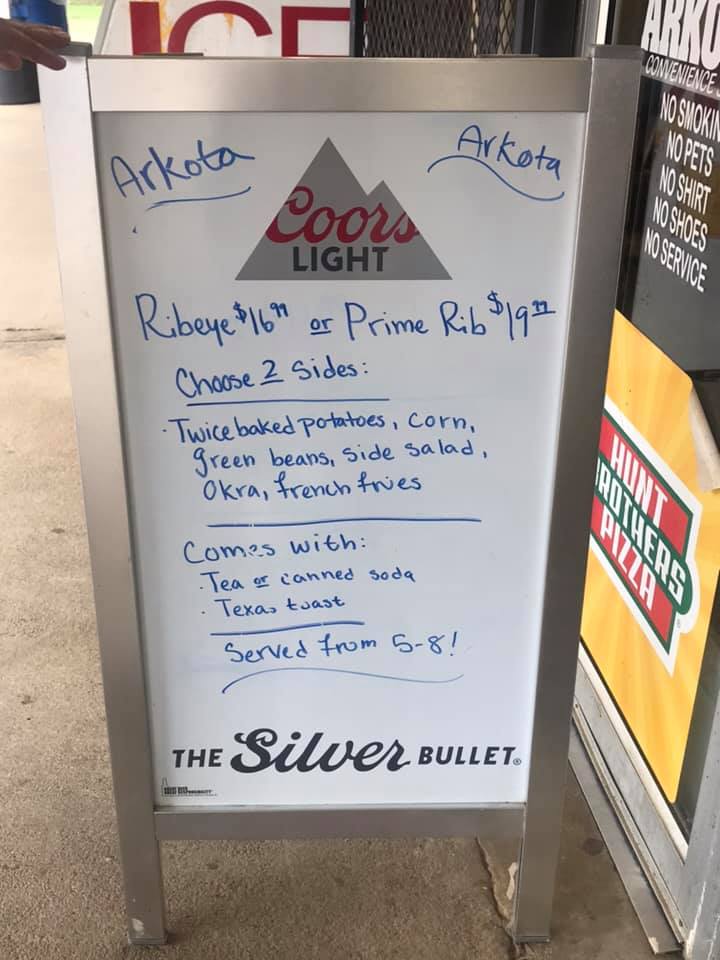 ICE
ARKO
CONVENIENCE
NO SMOKIN
NO PETS
NO SHIRT
NO SHOES
NO SERVICE
Arkota
Arkota
Coors
LIGHT
Ribeye $16⁹⁹ or Prime Rib $19⁹⁹
Choose 2 Sides:
· Twice baked potatoes, corn,
green beans, side salad,
Okra, french fries
Comes with:
· Tea or canned soda
· Texas toast
Served from 5-8!
THE Silver BULLET®
HUNT
BROTHERS
PIZZA